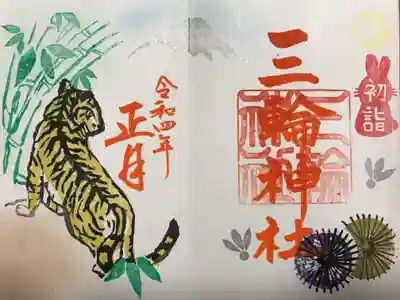 三輪神社
初詣
令和四年
正月
三輪
神社